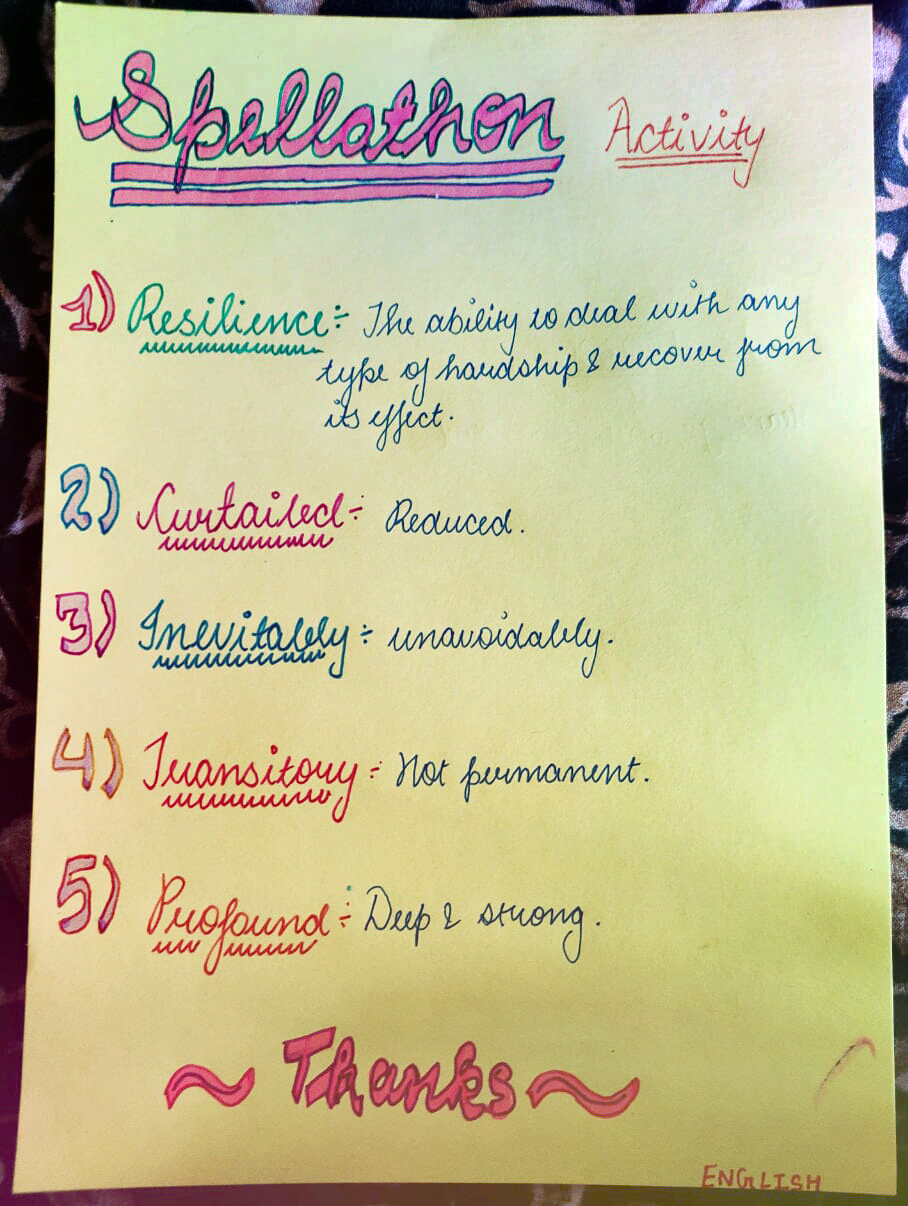 Spellathon Activity
1) Resilience:- The ability to deal with any
type of hardship & recover from
its effect.
2) Curtailed:- Reduced.
3) Inevitably:- unavoidably.
4) Transitory:- Not permanent.
5) Profound:- Deep & strong.
~ Thanks ~
ENGLISH